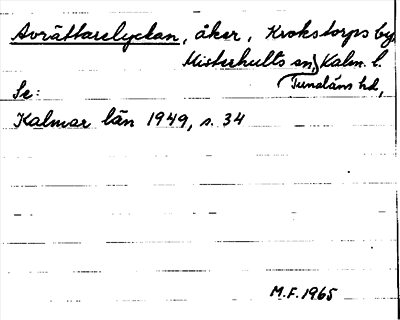 Avrättarelyckan, åker, Krokstorps by,
Misterhults sn, Kalm. l.
Tunaläns hd,
Se:
Kalmar län 1949, s. 34
M.F. 1965